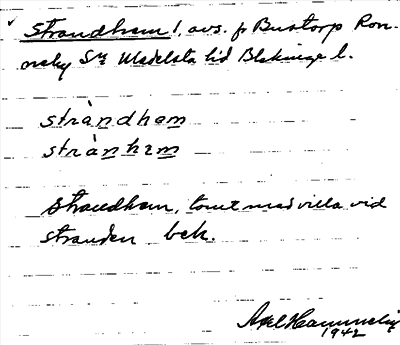 Strandhem l, avs. fr Bustorp Ron-
neby Sn Medelsta hd Blekinge l.
stràndhem
strànhem
Strandhem, tomt med villa vid
stranden beh.
Axel Hammelin
1942